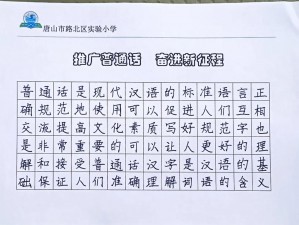 唐山市路北区实验小学
推广普通话 奋进新征程
普通话是现代汉语的标准语言正
确规范地使用可以促进人们互相
交流提高文化素质写好规范字也
是非常重要的可以让人更好的理
解和接受普通话汉字是汉语的基
础保证人们准确理解词语的含义